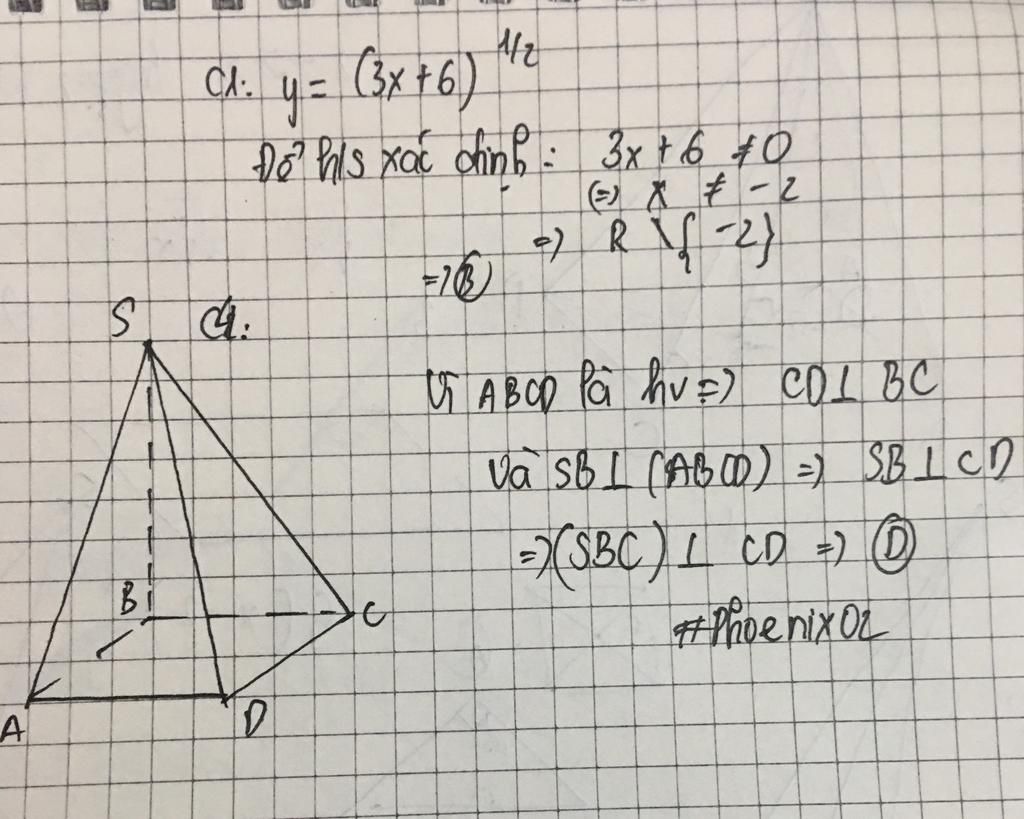 C1: y = (3x+6)^1/2
Để h/s xác định: 3x + 6 ≠ 0
(=) x ≠ -2
=) R \ { -2}
=) B
S C4:
Vì ABCD là hv =) CD ⊥ BC
Và SB ⊥ (ABCD) =) SB ⊥ CD
=) (SBC) ⊥ CD =) D
#Phoenix02
B C
A D